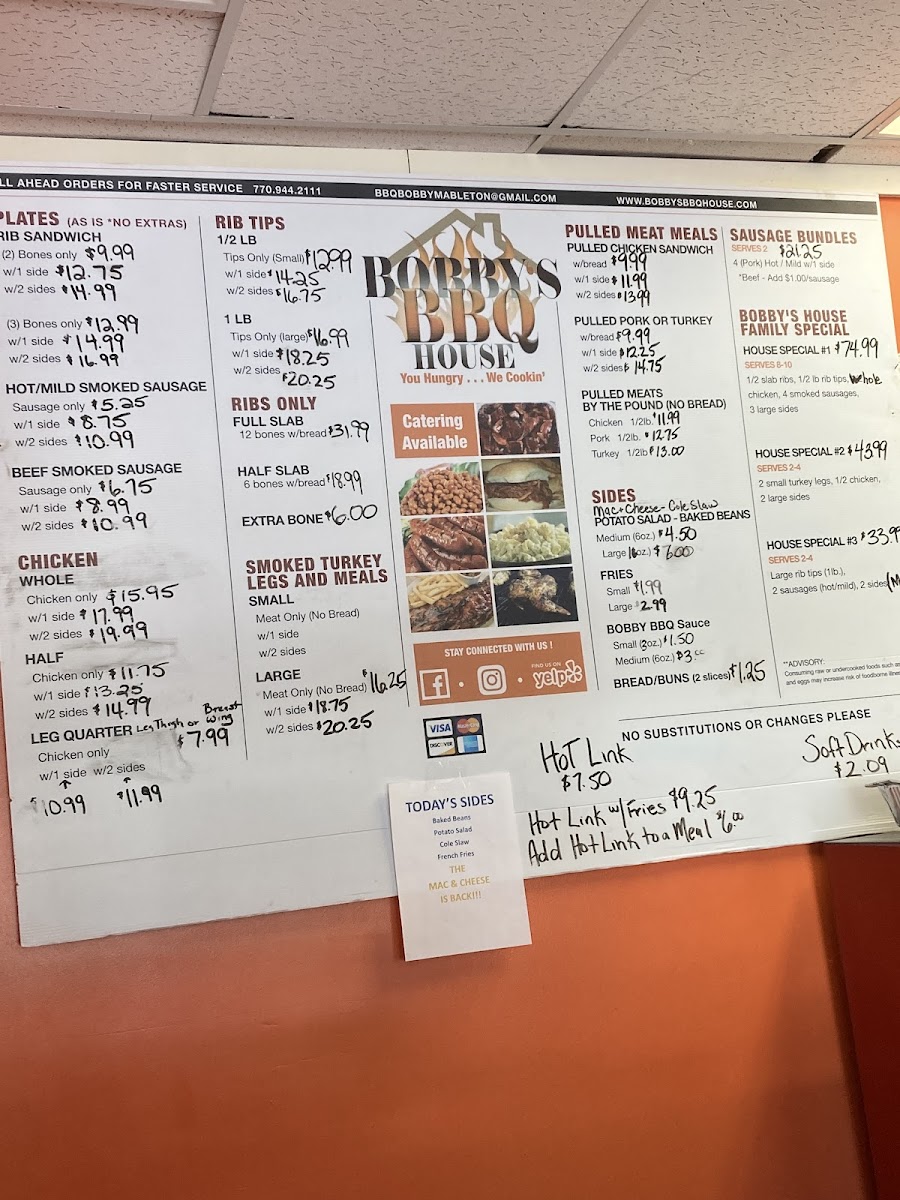 LL AHEAD ORDERS FOR FASTER SERVICE 770.944.2111
BBQBOBBYMABLETON@GMAIL.COM
WWW.BOBBYSBBQHOUSE.COM
PLATES (AS IS *NO EXTRAS)
RIB SANDWICH
(2) Bones only $9.99
w/1 side $12.75
w/2 sides $14.99
(3) Bones only $12.99
w/1 side $14.99
w/2 sides $16.99
HOT/MILD SMOKED SAUSAGE
Sausage only $5.25
w/1 side $8.75
w/2 sides $10.99
BEEF SMOKED SAUSAGE
Sausage only $6.75
w/1 side $8.99
w/2 sides $10.99
CHICKEN
WHOLE
Chicken only $15.95
w/1 side $17.99
w/2 sides $19.99
HALF
Chicken only $11.75
w/1 side $13.25
w/2 sides $14.99
LEG QUARTER Leg Thigh or Breast Wing
Chicken only $7.99
w/1 side w/2 sides
$10.99 $11.99
RIB TIPS
1/2 LB
Tips Only (Small) $12.99
w/1 side $14.25
w/2 sides $16.75
1 LB
Tips Only (large) $16.99
w/1 side $18.25
w/2 sides $20.25
RIBS ONLY
FULL SLAB
12 bones w/bread $31.99
HALF SLAB
6 bones w/bread $18.99
EXTRA BONE $6.00
SMOKED TURKEY
LEGS AND MEALS
SMALL
Meat Only (No Bread)
w/1 side
w/2 sides
LARGE
Meat Only (No Bread) $16.25
w/1 side $18.75
w/2 sides $20.25
BOBBY'S
BBQ
HOUSE
You Hungry . . . We Cookin'
Catering
Available
STAY CONNECTED WITH US !
f
FIND US ON
yelp
VISA
MasterCard
DISCOVER
PULLED MEAT MEALS
PULLED CHICKEN SANDWICH
w/bread $9.99
w/1 side $11.99
w/2 sides $13.99
PULLED PORK OR TURKEY
w/bread $9.99
w/1 side $12.25
w/2 sides $14.75
PULLED MEATS
BY THE POUND (NO BREAD)
Chicken 1/2lb. $11.99
Pork 1/2lb. $12.75
Turkey 1/2lb $13.00
SIDES
Mac+Cheese - Cole Slaw
POTATO SALAD - BAKED BEANS
Medium (6oz.) $4.50
Large (16oz.) $6.00
FRIES
Small $1.99
Large $2.99
BOBBY BBQ Sauce
Small (3oz.) $1.50
Medium (6oz.) $3.00
BREAD/BUNS (2 slices) $1.25
SAUSAGE BUNDLES
SERVES 2 $21.25
4 (Pork) Hot / Mild w/1 side
*Beef - Add $1.00/sausage
BOBBY'S HOUSE
FAMILY SPECIAL
HOUSE SPECIAL #1 $74.99
SERVES 8-10
1/2 slab ribs, 1/2 lb rib tips, Whole
chicken, 4 smoked sausages,
3 large sides
HOUSE SPECIAL #2 $43.99
SERVES 2-4
2 small turkey legs, 1/2 chicken,
2 large sides
HOUSE SPECIAL #3 $33.99
SERVES 2-4
Large rib tips (1lb.),
2 sausages (hot/mild), 2 sides (M
**ADVISORY:
Consuming raw or undercooked foods such as
and eggs may increase risk of foodborne illnes
NO SUBSTITUTIONS OR CHANGES PLEASE
Hot Link
$7.50
Soft Drinks
$2.09
Hot Link w/Fries $9.25
Add Hot Link to a Meal $6.00
TODAY'S SIDES
Baked Beans
Potato Salad
Cole Slaw
French Fries
THE
MAC & CHEESE
IS BACK!!!